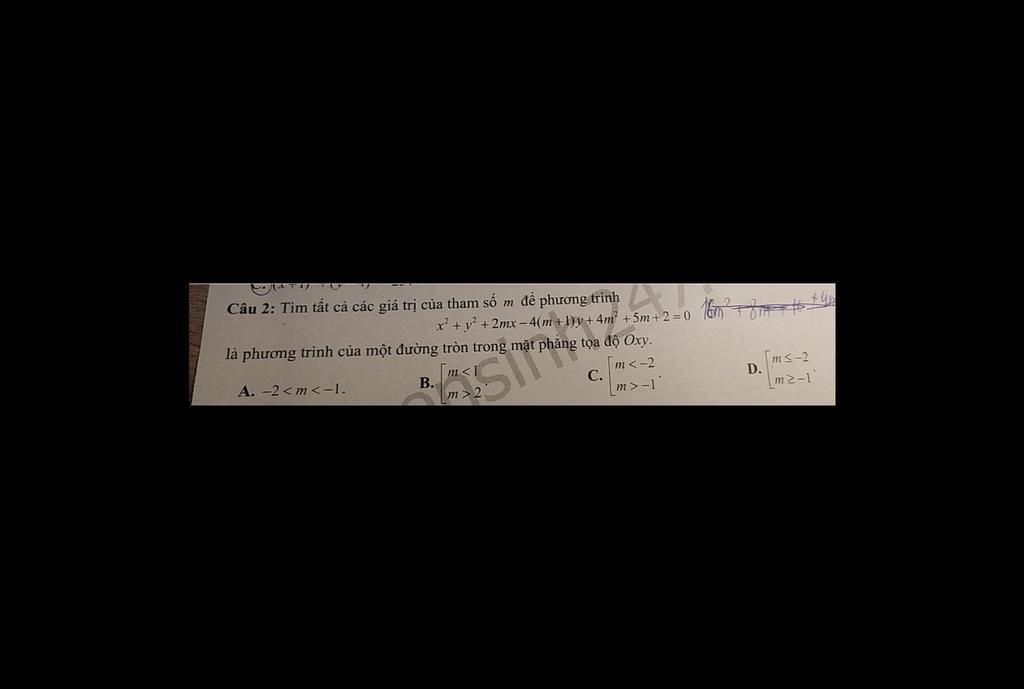 Câu 2: Tìm tất cả các giá trị của tham số m để phương trình
x² + y² + 2mx − 4(m+1)y + 4m² + 5m + 2 = 0
là phương trình của một đường tròn trong mặt phẳng tọa độ Oxy.
A. −2 < m < −1. B. [m < 1 m > 2. C. [m < −2 m > −1. D. [m ≤ −2 m ≥ −1.